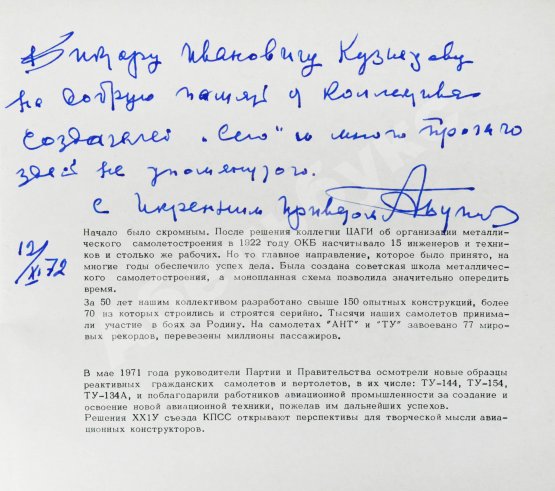 Виктору Ивановичу Кузнецову
на добрую память от коллектива
создателей „Сего" и много прочего
здесь не упомянутого.
С искренним приветом
12/XI 72
Начало было скромным. После решения коллегии ЦАГИ об организации металли-
ческого самолетостроения в 1922 году ОКБ насчитывало 15 инженеров и техни-
ков и столько же рабочих. Но то главное направление, которое было принято, на
многие годы обеспечило успех дела. Была создана советская школа металличес-
кого самолетостроения, а монопланная схема позволила значительно опередить
время.
За 50 лет нашим коллективом разработано свыше 150 опытных конструкций, более
70 из которых строились и строятся серийно. Тысячи наших самолетов принима-
ли участие в боях за Родину. На самолетах "АНТ" и "ТУ" завоевано 77 миро-
вых рекордов, перевезены миллионы пассажиров.
В мае 1971 года руководители Партии и Правительства осмотрели новые образцы
реактивных гражданских самолетов и вертолетов, в их числе: ТУ-144, ТУ-154,
ТУ-134А, и поблагодарили работников авиационной промышленности за создание и
освоение новой авиационной техники, пожелав им дальнейших успехов.
Решения ХХ1У съезда КПСС открывают перспективы для творческой мысли авиа-
ционных конструкторов.